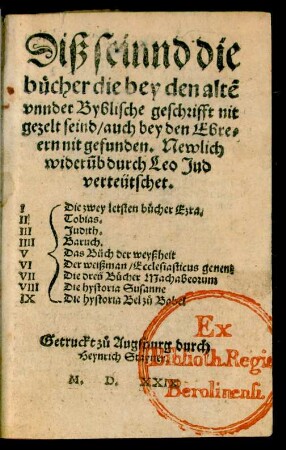 Diß seinnd die
bücher die bey den altē
vnnder Byblische geschrifft nit
gezelt seind/auch bey den Ebre-
ern nit gefunden. Newlich
widerūb durch Leo Jud
verteütschet.
I Die zwey letsten bücher Ezra.
II Tobias.
III Judith.
IIII Baruch.
V Das Büch der weyßheit
VI Der weißman/Ecclesiasticus genent
VII Die dreü Bücher Machabeorum
VIII Die hystoria Susanne
IX Die hystoria Bel zů Babel
Getruckt zů Augspurg durch
Heynrich Stayner.
M. D. XXIX
Ex
Biblioth. Regia
Berolinensi.